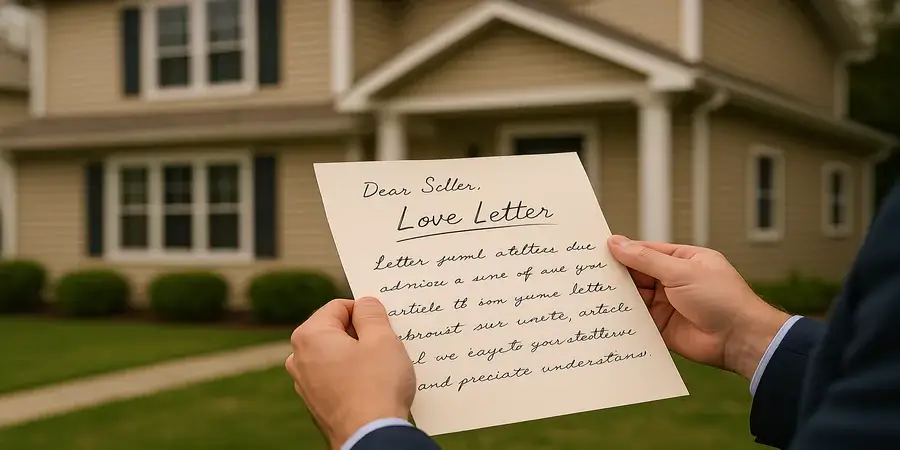 Dear Seller,
Love Letter
Letter juml atettes due
admiou a sme of ave your
article tB som yume letter
broust sur unete, artscle
we eaye to your stetterve
and preciate understans.